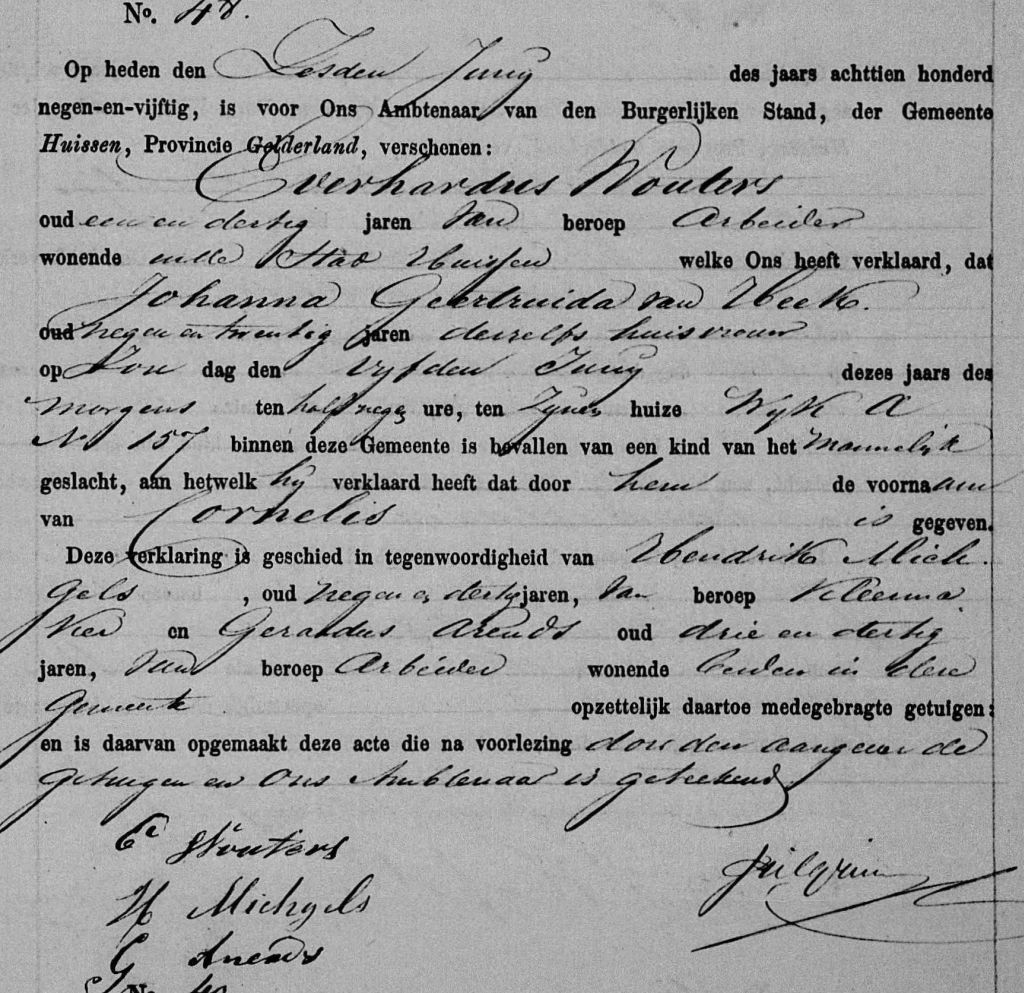 No. 48.
Op heden den Zesden Junij des jaars achttien honderd
negen-en-vijftig, is voor Ons Ambtenaar van den Burgerlijken Stand, der Gemeente
Huissen, Provincie Gelderland, verschenen:
Everhardus Wouters
oud een en dertig jaren van beroep Arbeider
wonende in de Stad Huissen welke Ons heeft verklaard, dat
Johanna Geertruida van Heek.
oud negen en twentig jaren deszelfs huisvrouw
op Zon dag den vijfden Junij dezes jaars des
morgens ten half negen ure, ten Zynen huize Wyk A
No 157 binnen deze Gemeente is bevallen van een kind van het Mannelijk
geslacht, aan hetwelk hij verklaard heeft dat door hem de voornaam
van Cornelis is gegeven.
Deze verklaring is geschied in tegenwoordigheid van Hendrik Mich
gels , oud negen en dertig jaren, van beroep Kleerma
ker en Gerardus Arends oud drie en dertig
jaren, van beroep Arbeider wonende beiden in deze
Gemeente opzettelijk daartoe medegebragte getuigen:
en is daarvan opgemaakt deze acte die na voorlezing door den aangever de
getuigen en Ons Ambtenaar is geteekend.
E Wouters
H Michgels
Pilgrim
G Arends
No. 49